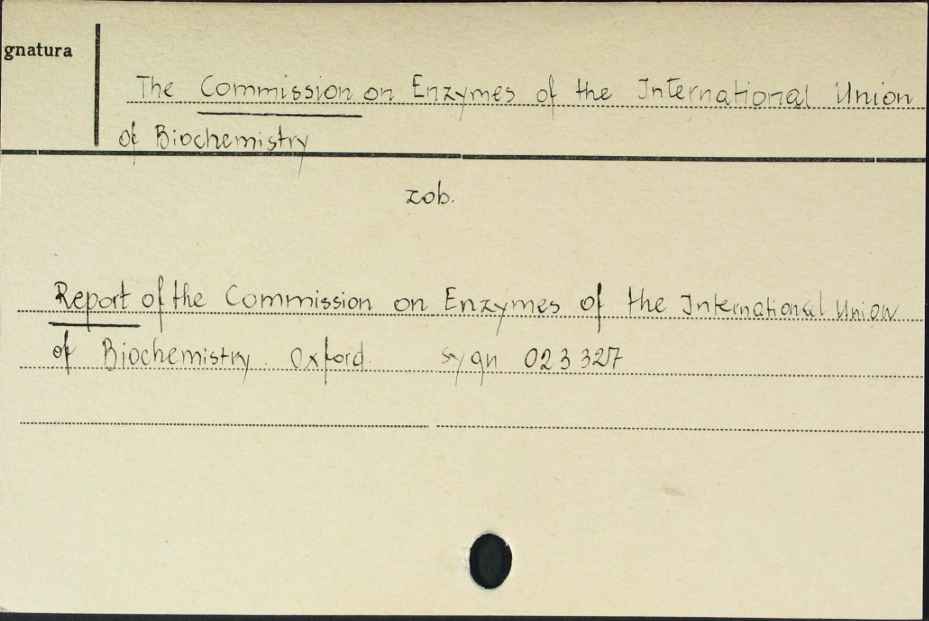 gnatura
The Commission on Enzymes of the International Union
of Biochemistry
zob.
Report of the Commission on Enzymes of the International Union
of Biochemistry. Oxford. Sygn 023 327